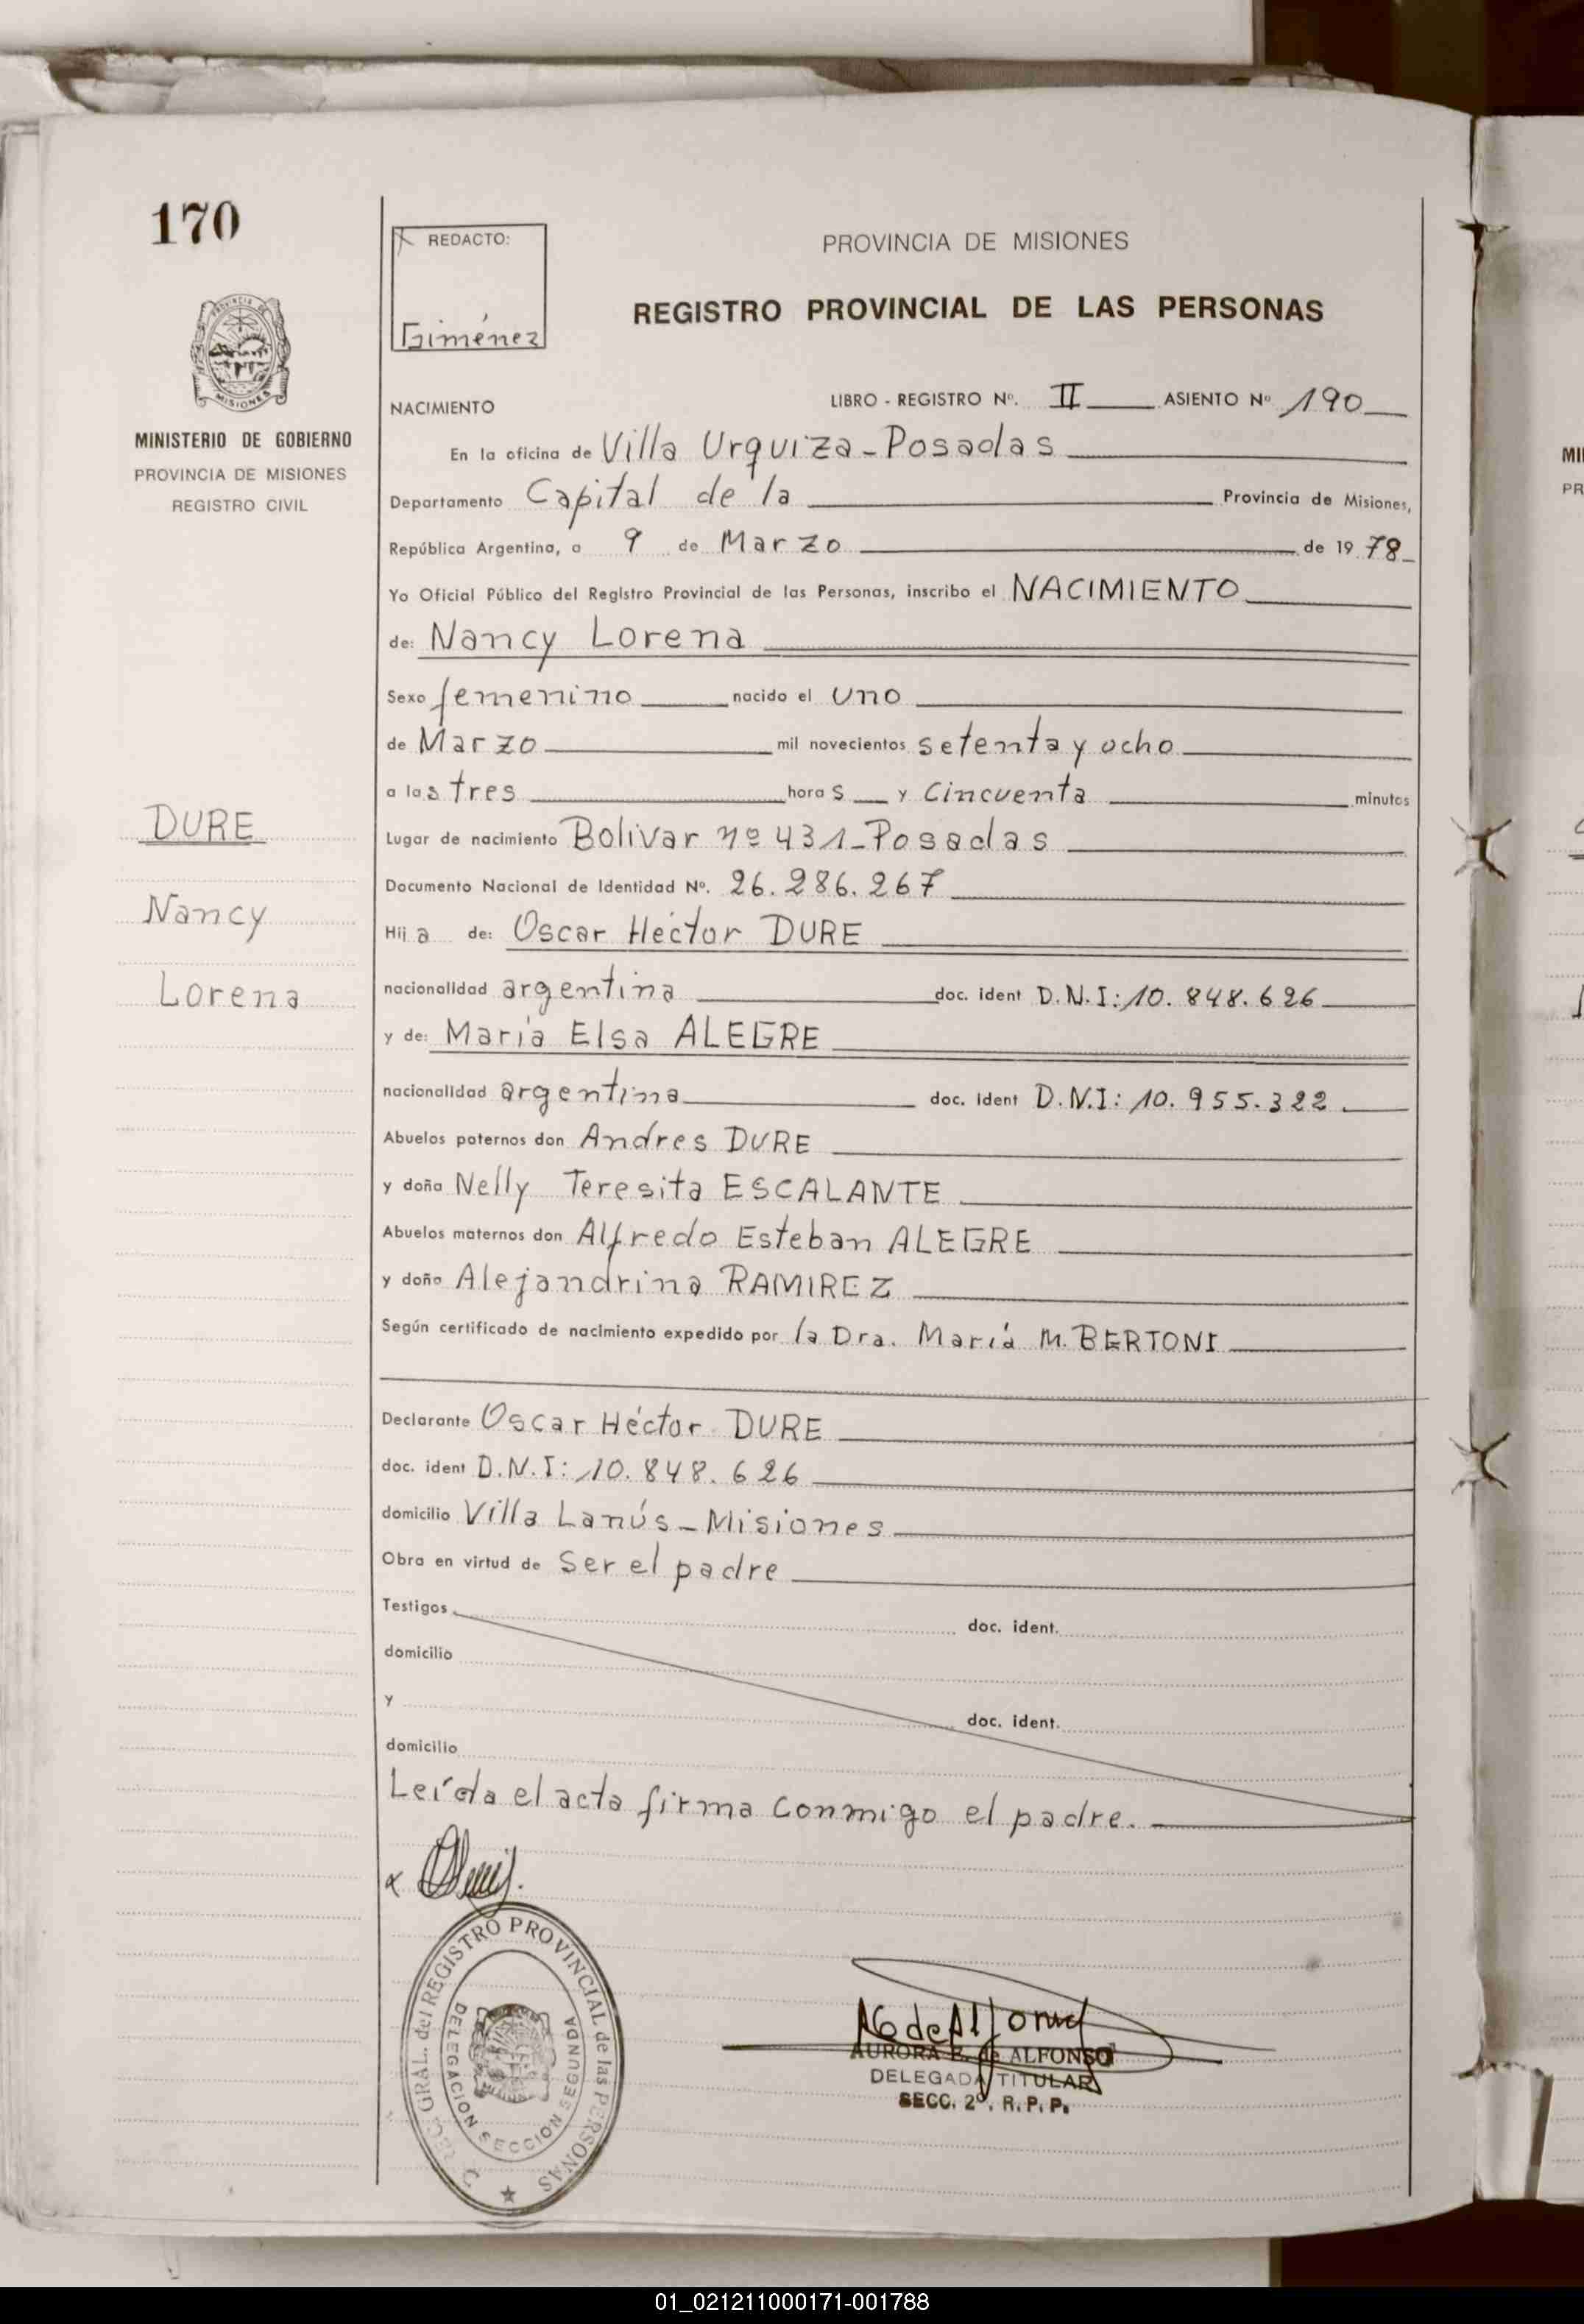 170
REDACTO:
Giménez
PROVINCIA DE MISIONES
REGISTRO PROVINCIAL DE LAS PERSONAS
PROVINCIA DE
MISIONES
MINISTERIO DE GOBIERNO
PROVINCIA DE MISIONES
REGISTRO CIVIL
NACIMIENTO LIBRO - REGISTRO Nº. II ASIENTO Nº 190
En la oficina de Villa Urquiza - Posadas
Departamento Capital de la Provincia de Misiones,
República Argentina, a 9 de Marzo de 19 78
Yo Oficial Público del Registro Provincial de las Personas, inscribo el NACIMIENTO
de: Nancy Lorena
Sexo femenino nacido el uno
de Marzo mil novecientos setenta y ocho
a las tres horas y cincuenta minutos
Lugar de nacimiento Bolivar nº 431 - Posadas
Documento Nacional de Identidad Nº. 26.286.267
Hija de: Oscar Héctor DURE
nacionalidad argentina doc. ident D.N.I: 10.848.626
y de: María Elsa ALEGRE
nacionalidad argentina doc. ident D.N.I: 10.955.322.
Abuelos paternos don Andres DURE
y doña Nelly Teresita ESCALANTE
Abuelos maternos don Alfredo Esteban ALEGRE
y doña Alejandrina RAMIREZ
Según certificado de nacimiento expedido por la Dra. María M. BERTONI
Declarante Oscar Héctor DURE
doc. ident D.N.I: 10.848.626
domicilio Villa Lanús - Misiones
Obra en virtud de ser el padre
Testigos doc. ident.
domicilio
y doc. ident.
domicilio
Leída el acta firma conmigo el padre.
DURE
Nancy
Lorena
GRAL. del REGISTRO PROVINCIAL de las PERSONAS
DELEGACION SECCION SEGUNDA
AG de Alfonso
AURORA de ALFONSO
DELEGADA TITULAR
SECC. 2º. R. P. P.
MI
PR
01_021211000171-001788